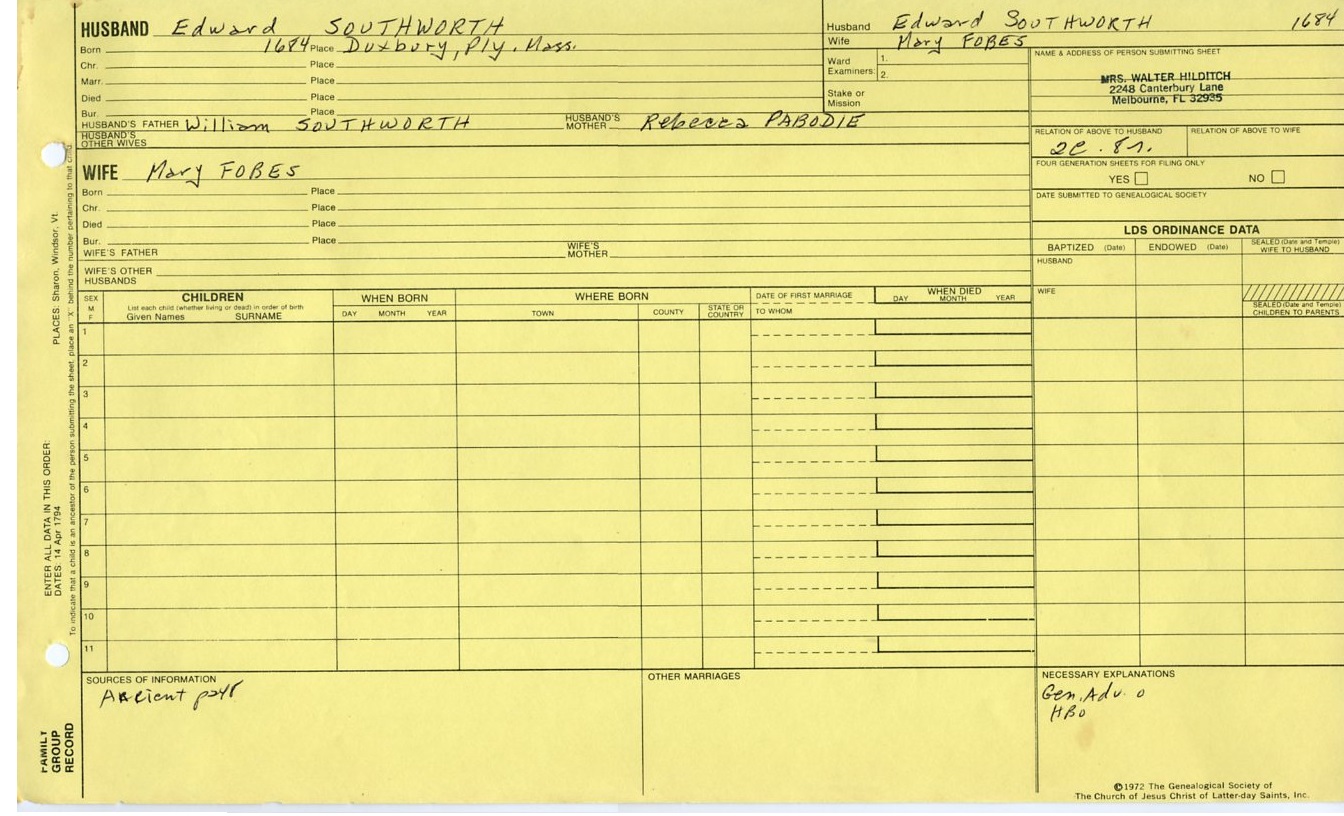 HUSBAND Edward SOUTHWORTH
Born 1684 Place Duxbury, Ply. Mass.
Chr. Place
Marr. Place
Died Place
Bur. Place
HUSBAND'S FATHER William SOUTHWORTH HUSBAND'S MOTHER Rebecca PABODIE
HUSBAND'S OTHER WIVES
WIFE Mary FOBES
Born Place
Chr. Place
Died Place
Bur. Place
WIFE'S FATHER WIFE'S MOTHER
WIFE'S OTHER HUSBANDS
Husband Edward SOUTHWORTH 1684
Wife Mary FOBES
Ward Examiners: 1.
2.
Stake or Mission
NAME & ADDRESS OF PERSON SUBMITTING SHEET
MRS. WALTER HILDITCH
2248 Canterbury Lane
Melbourne, FL 32935
RELATION OF ABOVE TO HUSBAND RELATION OF ABOVE TO WIFE
2C. 8r.
FOUR GENERATION SHEETS FOR FILING ONLY
YES NO
DATE SUBMITTED TO GENEALOGICAL SOCIETY
LDS ORDINANCE DATA
BAPTIZED (Date) ENDOWED (Date) SEALED (Date and Temple) WIFE TO HUSBAND
HUSBAND
WIFE
SEALED (Date and Temple) CHILDREN TO PARENTS
SEX M F
CHILDREN
List each child (whether living or dead) in order of birth
Given Names SURNAME
WHEN BORN
DAY MONTH YEAR
WHERE BORN
TOWN COUNTY STATE OR COUNTRY
DATE OF FIRST MARRIAGE
TO WHOM
WHEN DIED
DAY MONTH YEAR
1
2
3
4
5
6
7
8
9
10
11
SOURCES OF INFORMATION
Ancient
OTHER MARRIAGES
NECESSARY EXPLANATIONS
Gen. Adv. o
HBO
©1972 The Genealogical Society of
The Church of Jesus Christ of Latter-day Saints, Inc.
FAMILY GROUP RECORD
ENTER ALL DATA IN THIS ORDER:
DATES: 14 Apr 1794
PLACES: Sharon, Windsor, Vt.
To indicate that a child is an ancestor of the person submitting the sheet, place an "X" behind the number pertaining to that child.